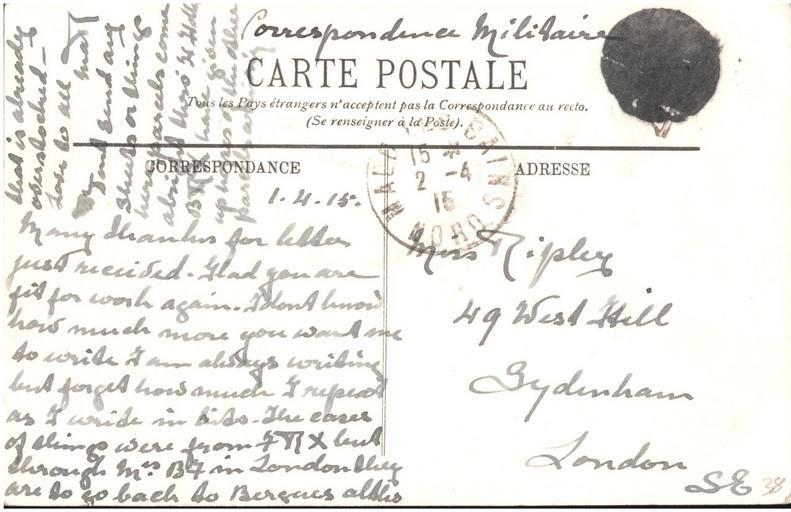 Correspondence Militaire
CARTE POSTALE
Tous les Pays étrangers n'acceptent pas la Correspondance au recto.
(Se renseigner à la Poste).
CORRESPONDANCE
ADRESSE
15 *
2 -4
15
NORD
1.4.15.
Many thanks for letter
just received. Glad you are
fit for work again. I dont know
how much more you want me
to write I am always writing
but forget how much I repeat
as I write in bits. The cases
of things were from
through Mrs B in London they
are to go back to Bergues
that is already
overstocked -
Love to all
Dont send any
or things
here parcels come
up
parcels
Miss Ripley
49 West Hill
Sydenham
London
SE
38